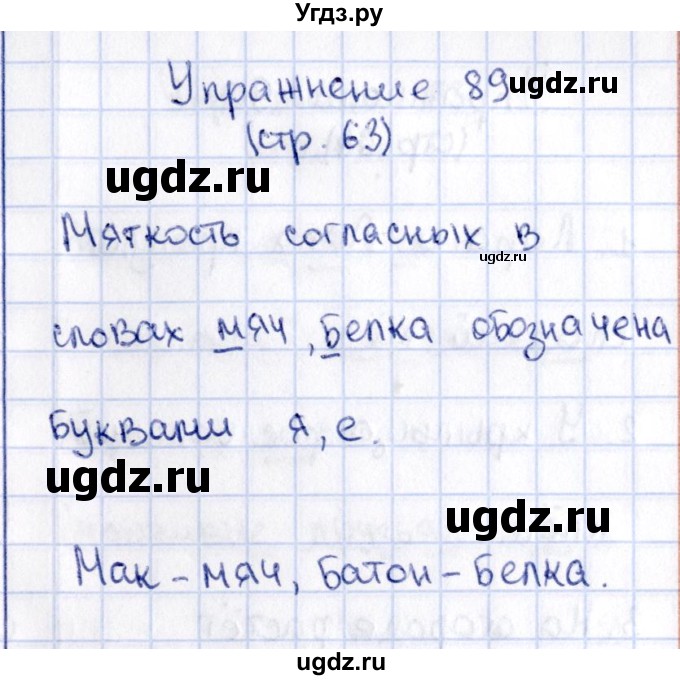 Угдз.ру
Упражнение 89
ugdz.ru
(стр. 63)
ugdz.ru
Мягкость согласных в
ugdz.ru
словах мяч, белка обозначена
буквами я, е.
ugdz.ru
ugdz.ru
Мак - мяч, батон - белка.
ugdz.ru